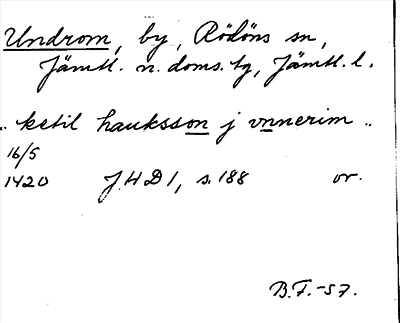 Undrom, by, Rödöns sn,
Jämtl. n. doms. tg, Jämtl. l.
.. ketil hauksson j vnnerim ..
16/5
1420 JHD 1, s. 188 or.
B.F.-57.